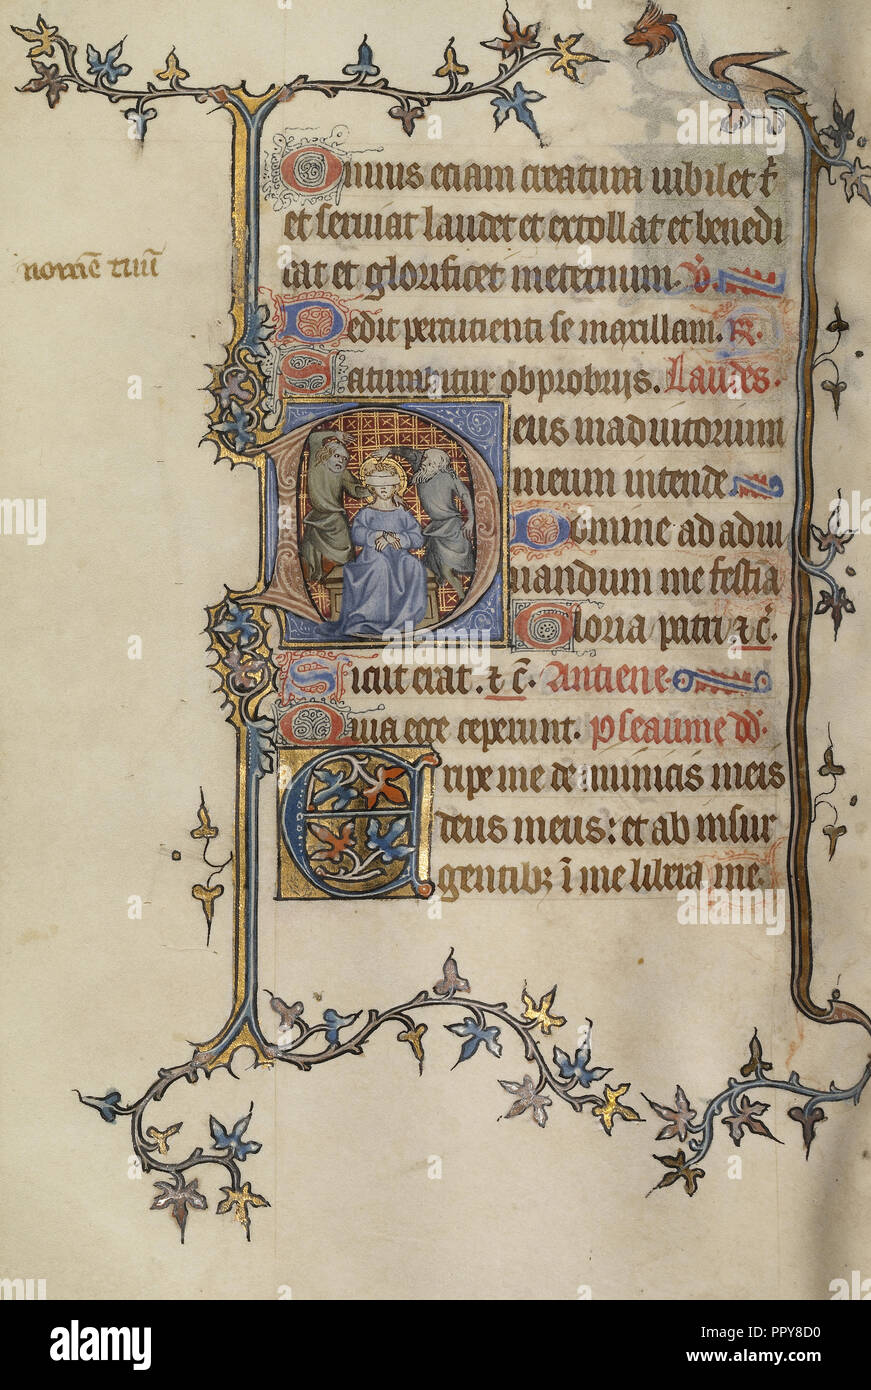 Omnis etiam creatura iubilet t̄
et seruiat laudet et extollat et benedi
cat et glorificet in eternum. V̄.
nomē tuū
Dedit percutienti se maxillam. R.
Saturabitur obprobrijs. Laudes.
Deus in adiutorium
meum intende
Domine ad adiu
uandum me festīa
Gloria patri & c̄.
Sicut erat. & c̄. Antiene
Quia ecce ceperunt. pseaume dd.
Eripe me de inimicis meis
deus meus: et ab insur
gentibꝫ ī me libera me.
alamy
Image ID: PPY8D0
www.alamy.com